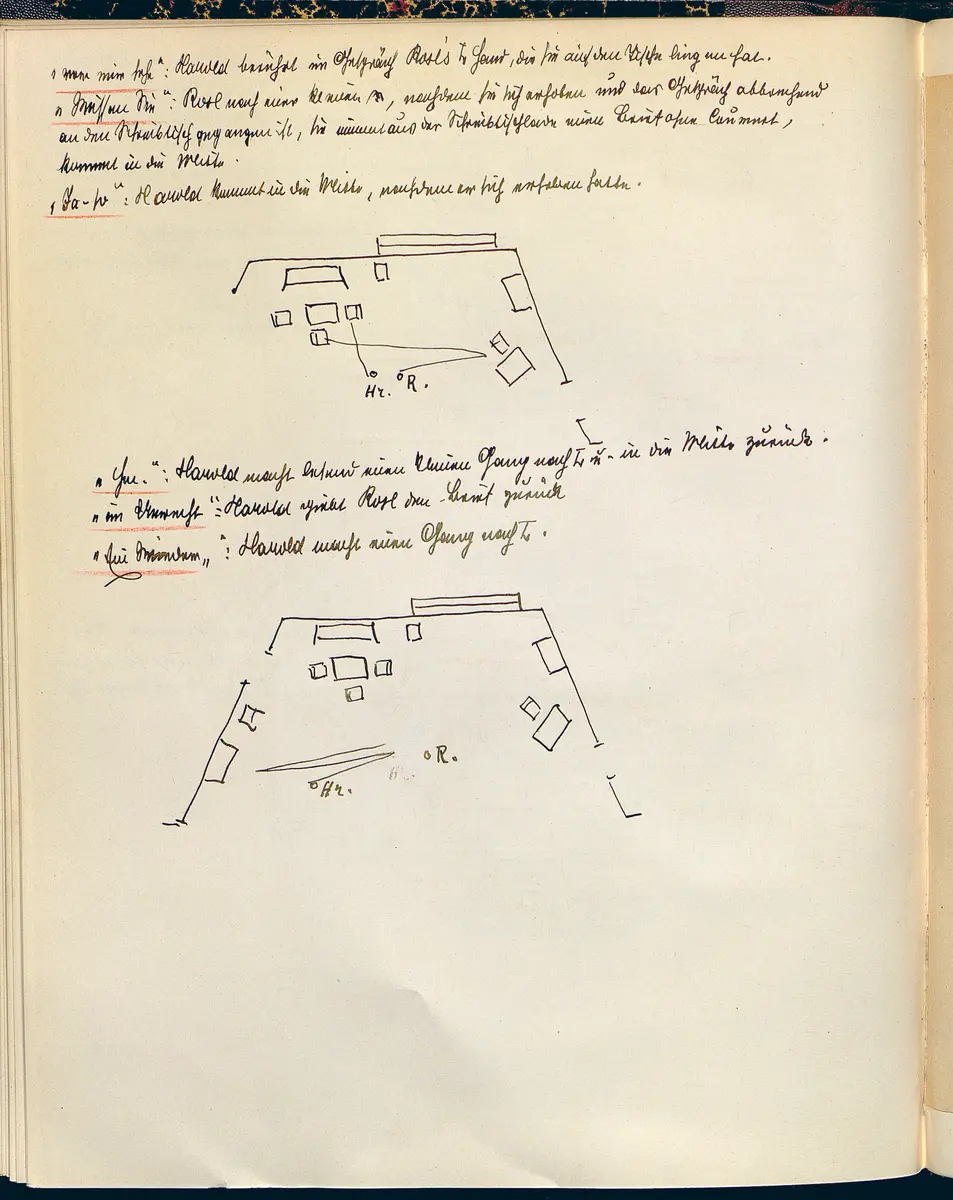 "           sehe": Harold berührt im Gespräch Rosl's l. Hand, die sie auf den Tische liegen hat.
"Wissen Sie": Rosl nach einer kleinen        , nachdem sie sich erhoben und das Gespräch abbrechend
an den Schreibtisch gegangen ist, sie nimmt aus der Schreibtischlade einen Brief ohne Couvert,
kommt in die Mitte.
"Ja-so": Harold kommt in die Mitte, nachdem er sich erhoben hatte.
Hr. R.
"Hm.": Harold macht lesend einen kleinen Gang nach l. u. in die Mitte zurück.
"im Unrecht": Harold giebt Rosl den Brief zurück
"      ": Harold macht einen Gang nach l.
R.
Hr.
Hr.